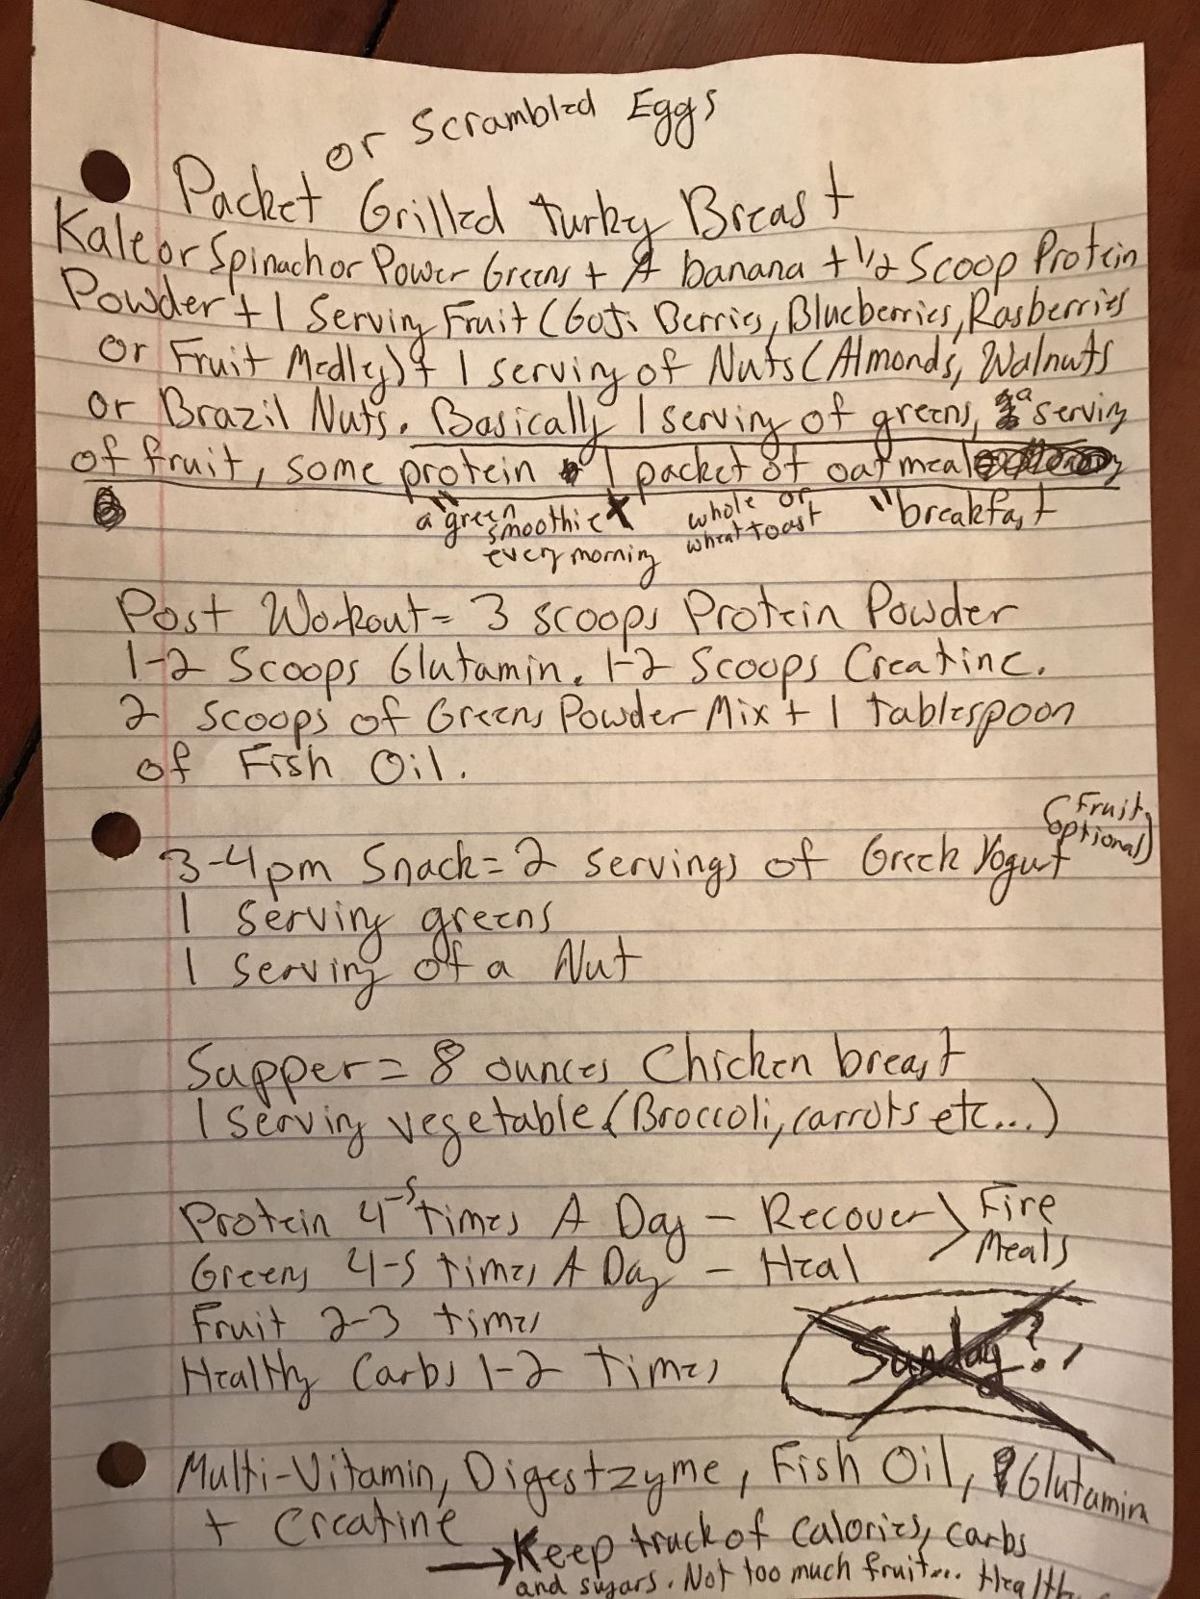 or Scrambled Eggs
Packet Grilled Turky Breast
Kale or Spinach or Power Greens + A banana + 1/2 Scoop Protein
Powder + 1 Serving Fruit (Goji Berries, Blueberries, Rasberries
or Fruit Medley) + 1 serving of Nuts (Almonds, Walnuts
or Brazil Nuts. Basically 1 serving of greens, a serving
of fruit, some protein 1 packet of oatmeal
a "green smoothie every morning
whole or wheat toast
"breakfast
Post Workout = 3 scoops Protein Powder
1-2 Scoops Glutamin. 1-2 Scoops Creatine.
2 scoops of Greens Powder Mix + 1 tablespoon
of Fish Oil.
(Fruit optional)
3-4pm Snack = 2 servings of Greek Yogurt
1 serving greens
1 serving of a Nut
Supper = 8 ounces Chicken breast
1 serving vegetable (Broccoli, carrots etc...)
Protein 4-5 times A Day - Recover > Fire
Greens 4-5 times A Day - Heal Meals
Fruit 2-3 times
Healthy Carbs 1-2 times
Sunday?
Multi-Vitamin, Digestzyme, Fish Oil, Glutamin
+ Creatine
→ Keep track of calories, carbs
and sugars. Not too much fruit...